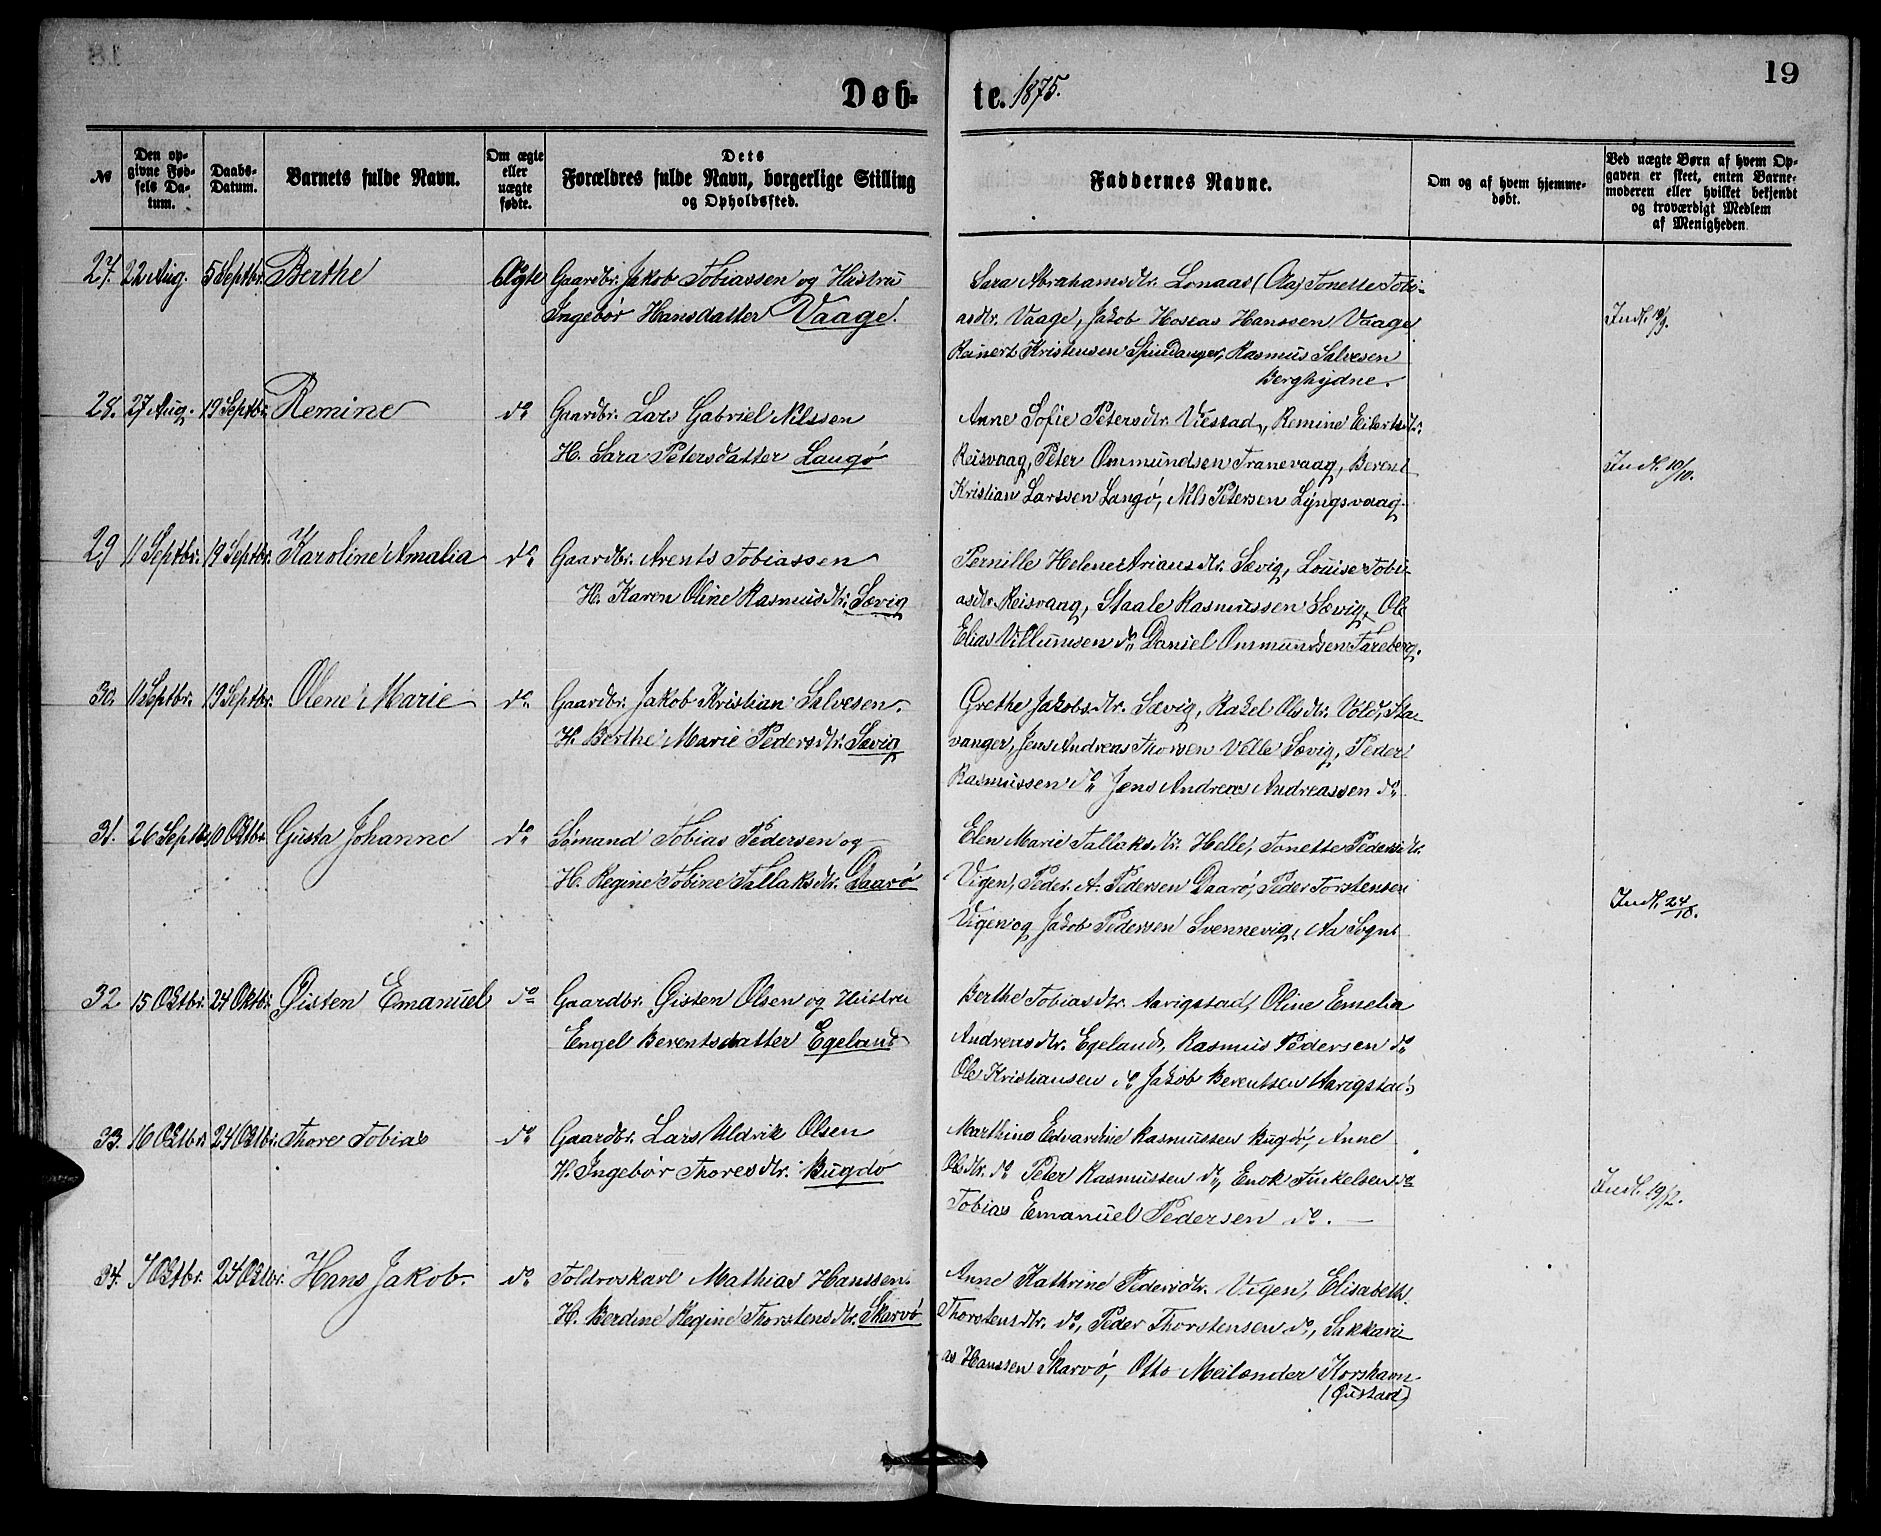 Døb-
te. 1875.
19
№
Den op-
givne Fød-
sels Da-
tum.
Daabs-
Datum.
Barnets fulde Navn.
Om ægte
eller
uægte
fødte.
Dets
Forældres fulde Navn, borgerlige Stilling
og Opholdssted.
Faddernes Navne.
Om og af hvem hjemme-
døbt.
Ved uægte Børn af hvem Op-
gaven er skeet, enten Barne-
moderen eller hvilket bekjendt
og troværdigt Medlem
af Menigheden.
27. 22 Aug. 5 Septbr. Berthe Ægte Gaardbr. Jakob Tobiassen og Hustru
Ingebør Hansdatter Vaage.
Sara Abrahamsdtr. Lonaas (Aa) Tonette Tobi-
asdtr. Vaage, Jakob Hoseas Hanssen Vaage
Reinert Kristensen Spindanger, Rasmus Salvesen
Berghydne.
Indl. 19/9.
28. 27 Aug. 19 Septbr. Remine do Gaardbr. Lars Gabriel Nilssen
H. Sara Petersdatter Langø
Anne Sofie Petersdtr. Viestad, Remine Eilertsdtr.
Reisvaag, Peter Ommundsen Tranevaag, Berent
Kristian Larssen Langø, Nils Petersen Lyngsvaag.
Indl. 10/10.
29 11 Septbr. 19 Septbr. Karoline Amalia do Gaardbr. Arents Tobiassen
H. Karen Oline Rasmusdtr. Sævig
Pernille Helene Ariansdtr. Sævig, Louise Tobi-
asdtr. Reisvaag, Staale Rasmussen Sævig, Ole
Elias Villumsen do Daniel Ommundsen Fareberg.
30. 11 Septbr. 19 Septbr. Olene Marie do Gaardbr. Jakob Kristian Salvesen.
H. Berthe Marie Pedersdtr. Sævig
Grethe Jakobsdtr. Sævig, Rakel Olsdtr. Vold, Sta-
vanger, Jens Andreas Thorsen Velle Sævig, Peder
Rasmussen do Jens Andreas Andreassen do
31. 26 Septbr. 10 Oktbr. Gusta Johanne do Sømand Tobias Pedersen og
H. Regine Tobine Tallaksdtr. Daarø
Elen Marie Tallaksdtr. Helle, Tonette Pedersdtr.
Vigen, Peder A. Pedersen Daarø, Peder Torstensen
Vigen og Jakob Pedersen Svennevig, Aa Sogn.
Indl. 24/10.
32. 15 Oktbr. 24 Oktbr. Øisten Emanuel do Gaardbr. Øisten Olsen og Hustru
Engel Berentsdatter Egeland
Berthe Tobiasdtr. Aarigstad, Oline Emelia
Andreasdtr. Egeland, Rasmus Pedersen do
Ole Kristiansen do Jakob Berentsen Aarigstad.
33. 16 Oktbr. 24 Oktbr. Thore Tobias do Gaardbr. Lars Uldrik Olsen
H. Ingebør Thoresdtr. Bugdø
Marthine Edvardine Rasmussen Bugdø, Anne
Olsdtr. do Peter Rasmussen do, Enok Finkelsen do
Tobias Emanuel Pedersen do.
Indl. 19/12.
34. 7 Oktbr. 24 Oktbr. Hans Jakob. do Toldroskarl Mathias Hanssen.
H. Berdine Regine Thorstensdtr. Skarvø
Anne Kathrine Pedersdtr. Vigen, Elisabeth
Thorstensdtr. do, Peder Thorstensen do, Sakkari-
as Hanssen Skarvø, Otto Meilænder Korshavn.
(Qustad)